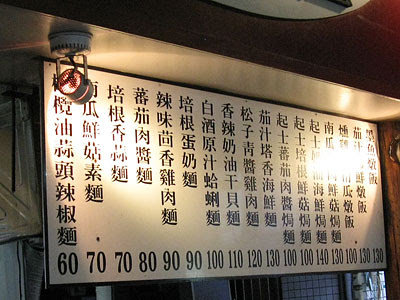 墨魚燉飯
茄汁海鮮燉飯
燻瓜燉飯
南瓜海鮮焗麵
起士海鮮焗麵
起士培根鮮菇焗麵
起士蕃茄肉醬焗麵
茄汁塔香海鮮麵
松子青醬雞肉麵
香辣奶油干貝麵
白酒原汁蛤蜊麵
培根蛋奶麵
辣味茴香雞肉麵
蕃茄肉醬麵
培根香蒜麵
南瓜鮮菇素麵
欖油蒜頭辣椒麵
60 70 70 80 90 90 100 110 120 130 100 100 140 130 100 130 130